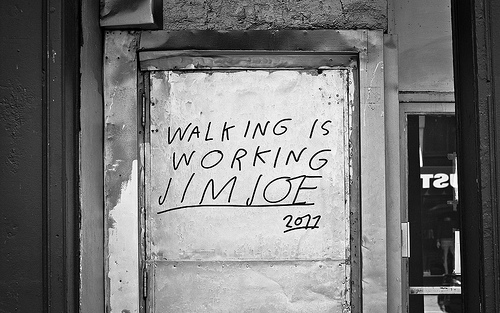 WALKING IS
WORKING
JIMJOE
2011